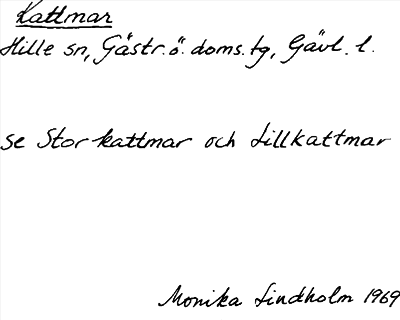 Kattmar
Hille sn, Gästr. ö. doms. tg, Gävl. l.
se Storkattmar och Lillkattmar
Monika Lindholm 1969